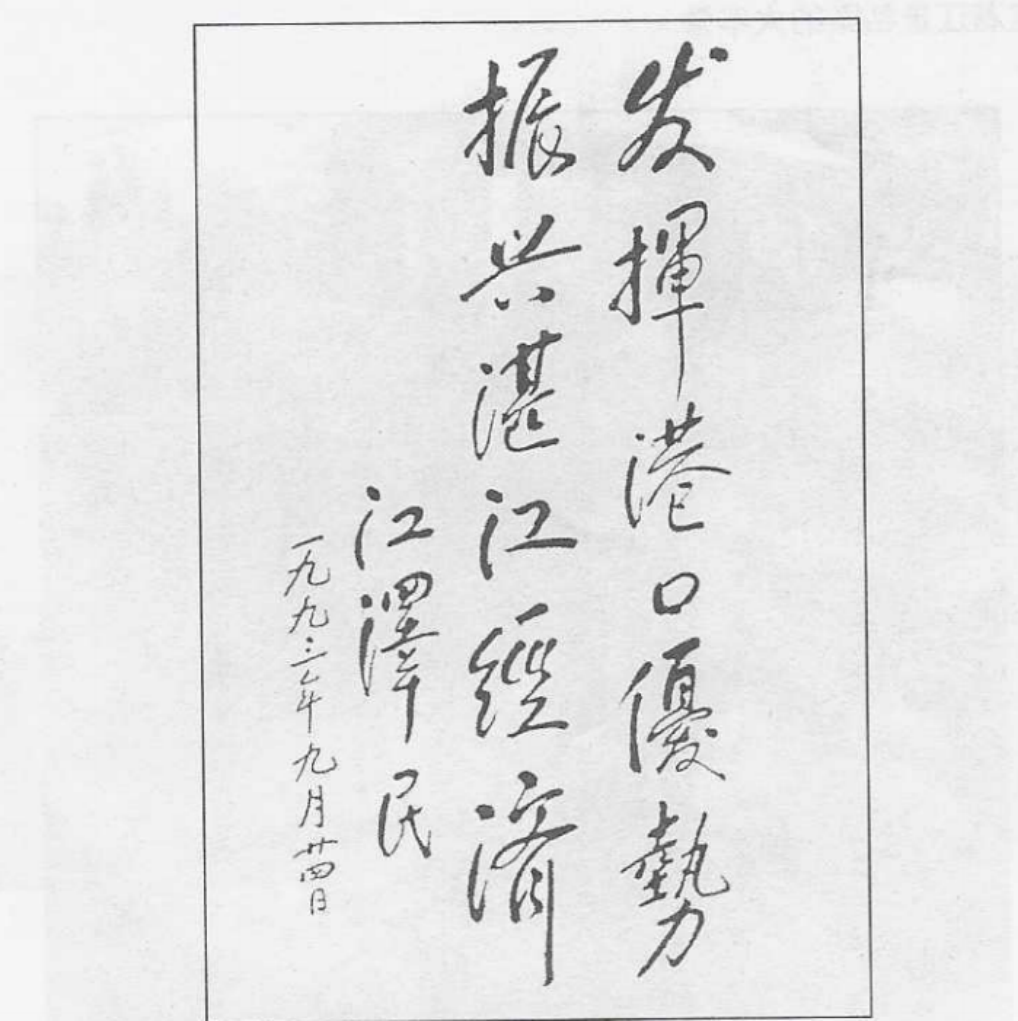 发揮港口優勢
振兴湛江經济
江澤民
一九九三年九月廿四日